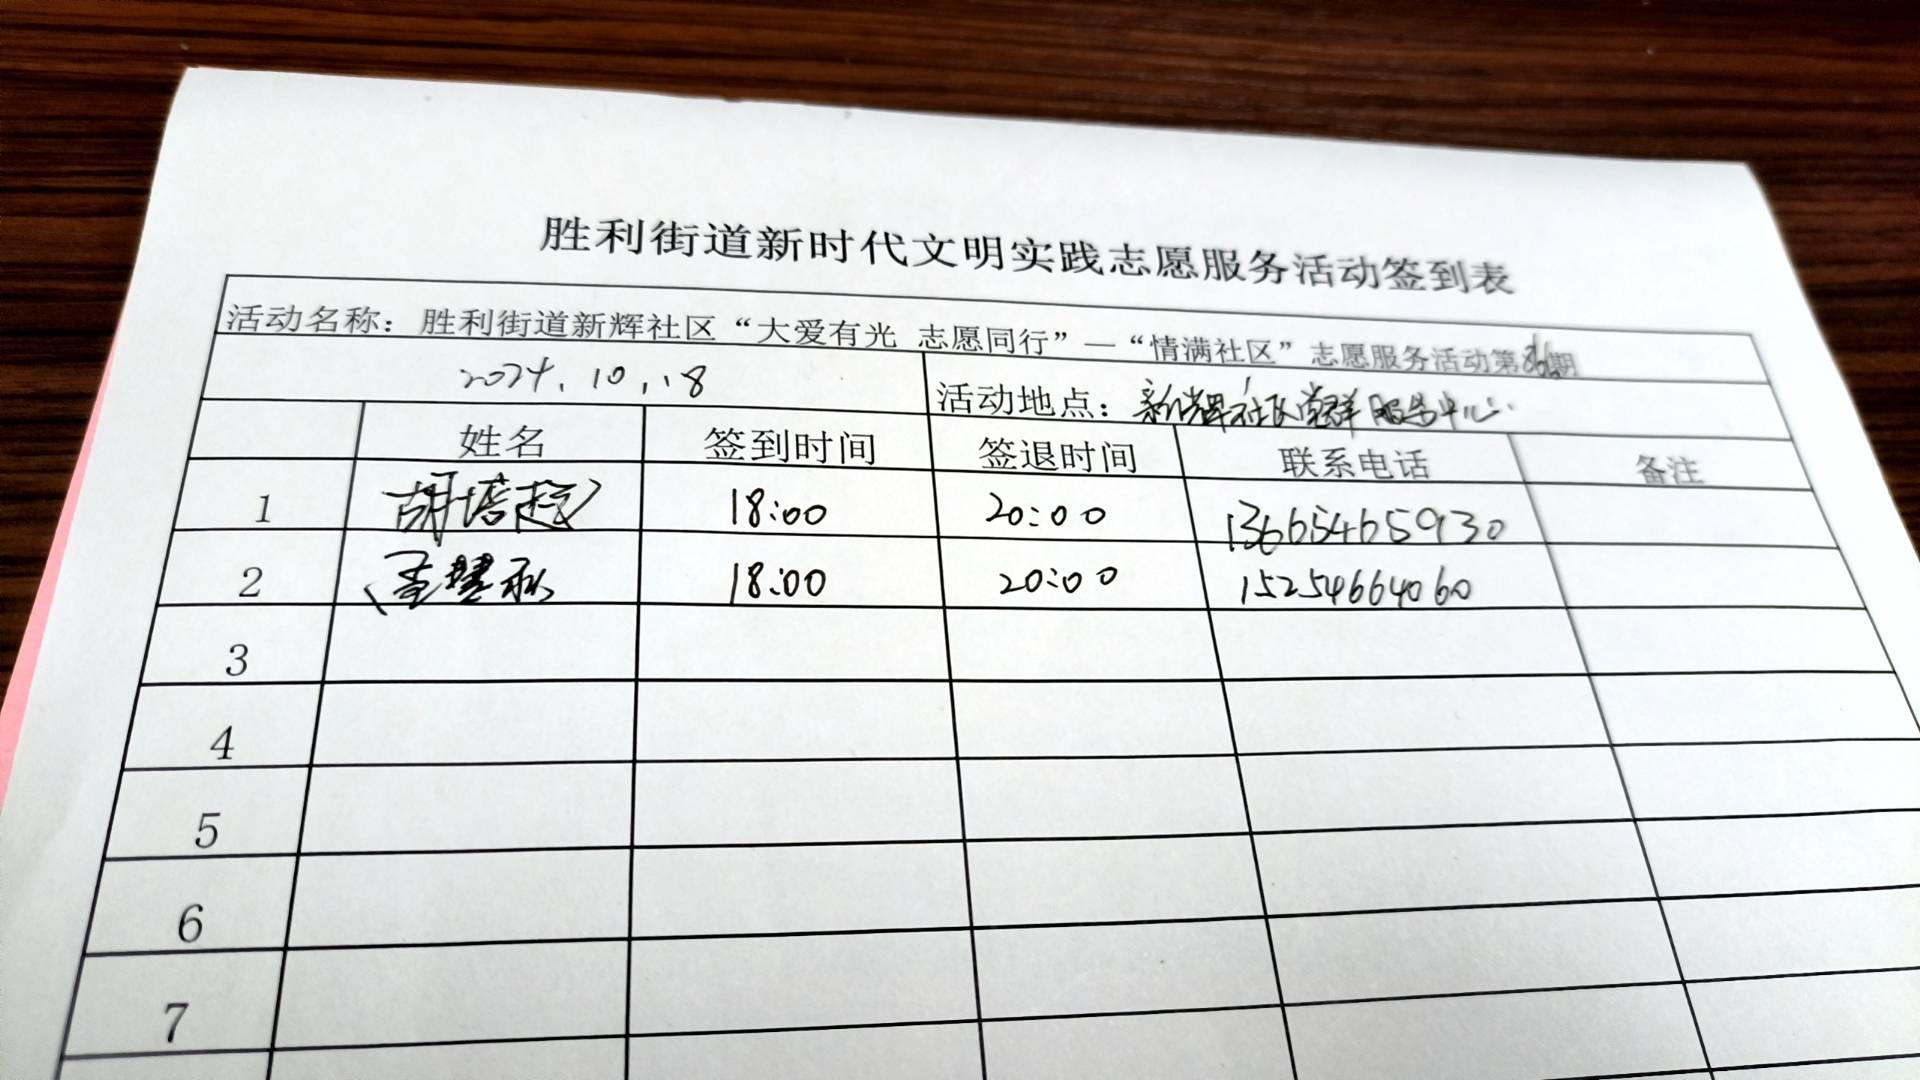 胜利街道新时代文明实践志愿服务活动签到表
活动名称：胜利街道新辉社区“大爱有光 志愿同行”—“情满社区”志愿服务活动第86期
2024.10.18 活动地点：新辉社区党群服务中心
姓名 签到时间 签退时间 联系电话 备注
1 18:00 20:00 13665465930
2 18:00 20:00 15254664060
3
4
5
6
7